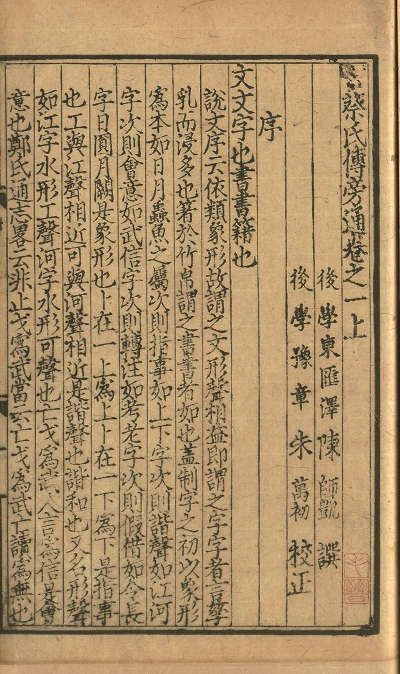 蔡氏傳旁通卷之一上
後學東匯澤陳師凱譔
後學豫章朱萬初校正
序
文文字也書書籍也
說文序云依類象形故謂之文形聲相益即謂之字字者言孳
乳而浸多也著於竹帛謂之書書者如也蓋制字之初以象形
為本如日月蟲魚之屬次則指事如上下字次則諧聲如江河
字次則會意如武信字次則轉注如考老字次則假借如令長
字日圓月闕是象形也卜在一上為上卜在一下為下是指事
也工與江聲相近可與河聲相近是諧聲也諧和也又名形聲
如江字水形工聲河字水形可聲也止戈為武人言為信是會
意也鄭氏通志畧云非止戈為武當云亡戈為武亡讀為無也